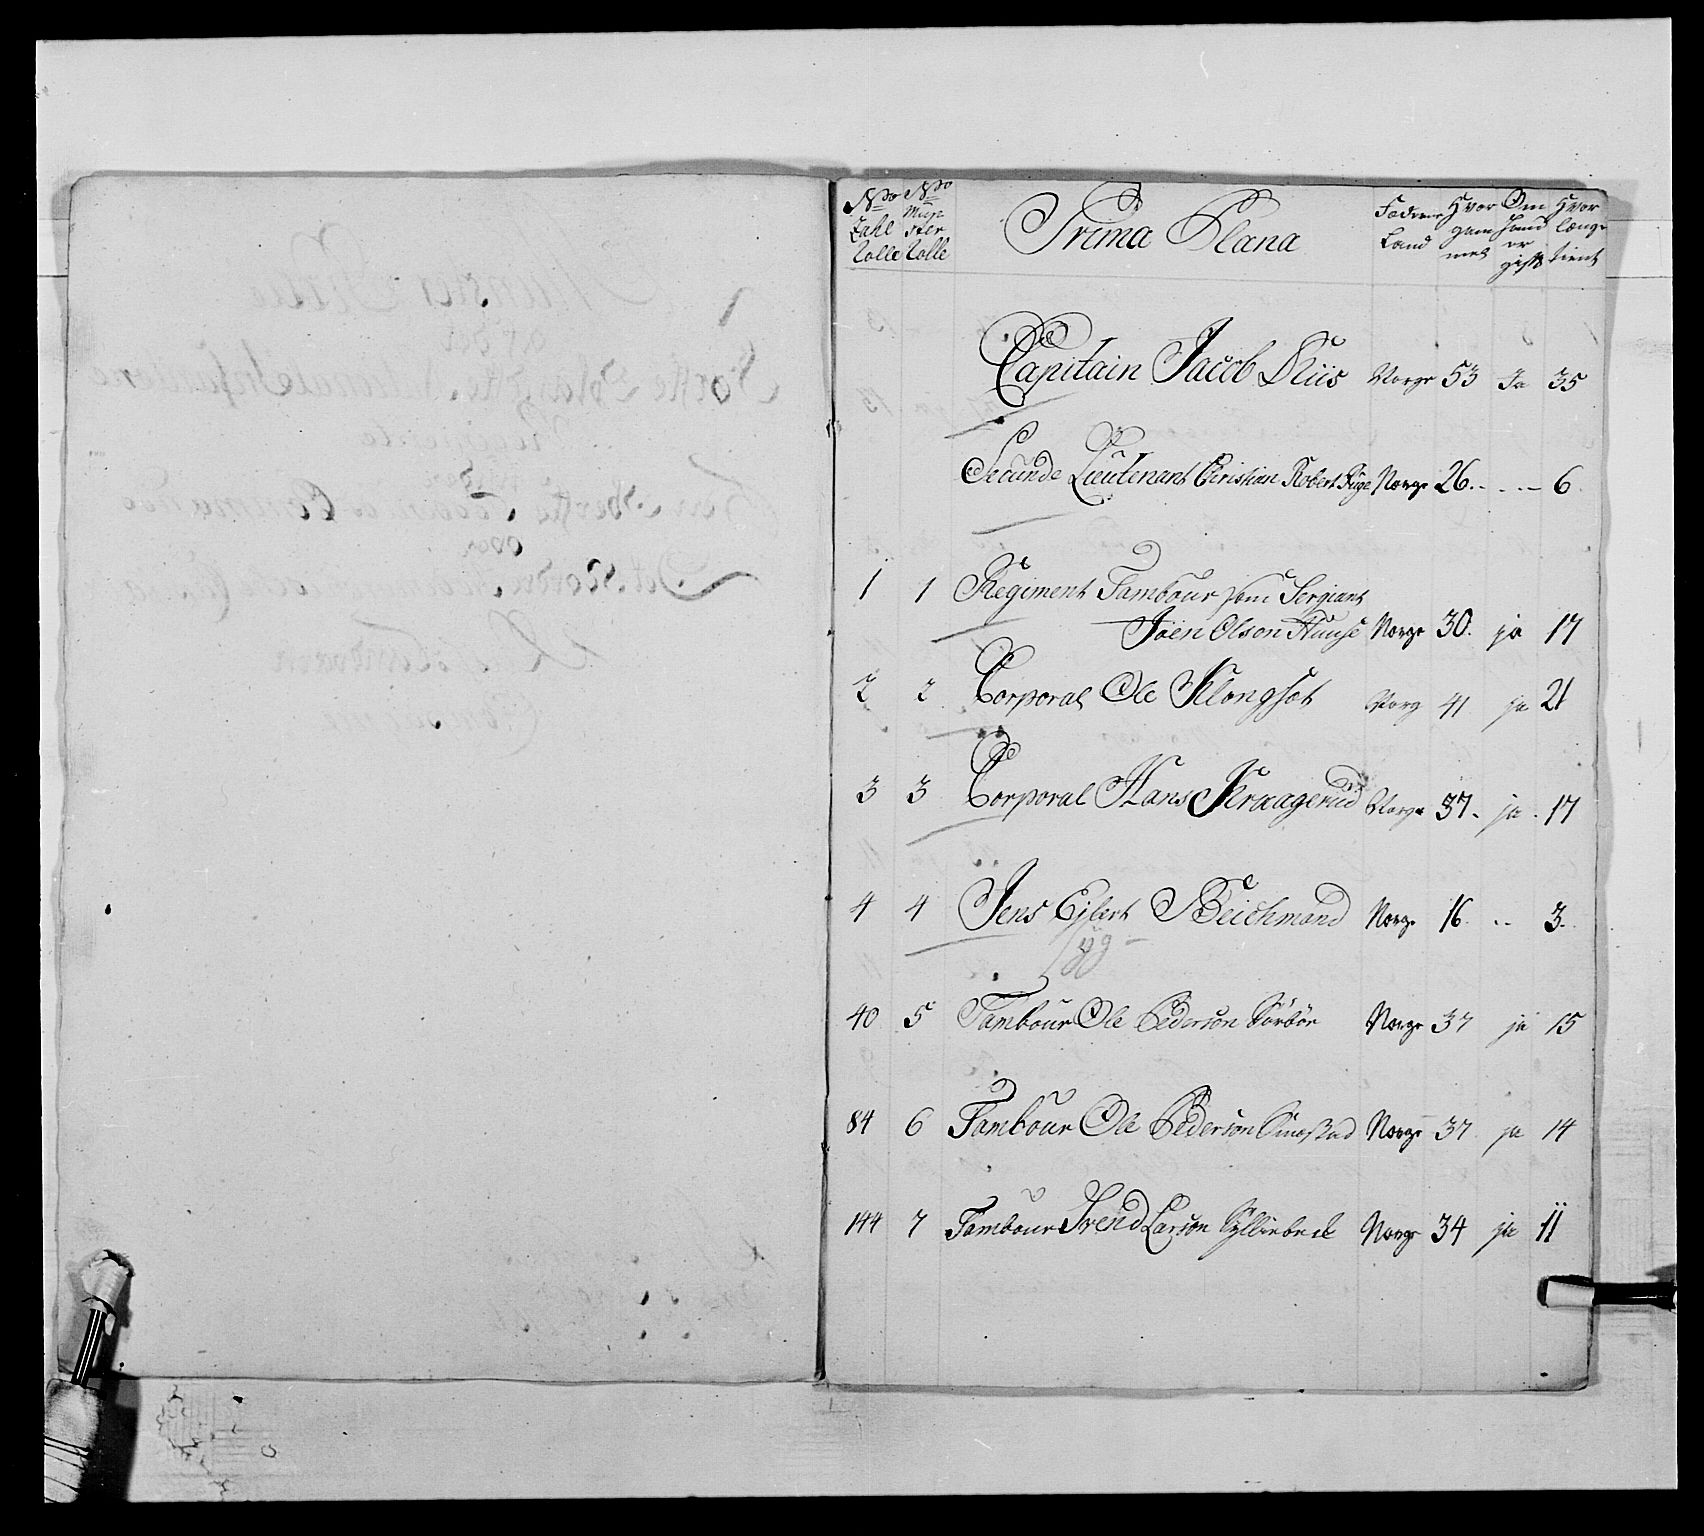 No No Prima Plana Fædrene Hvor Om Hvor
Zahl Mün Land gam hand længe
Rolle ster mel er tient
Rolle gift
Capitain Jacob Niis Norge 53 Ja 35
Secunde Lieutenant Christian Robert Norge 26. - - - 6
1 1 Regiment Tambour som Sergiant
Joen Olson Huuse Norge 30. ja 17
2 2 Corporal Ole Klongset Norg 41 ja 21
3 3 Corporal Hans Kraagerud Norge 37. ja. 17
4 4 Jens Ejlert Beichmand Norge 16. .. 3.
syg
40 5 Tambour Ole Pederson Sørbør Norge 37 ja 15
84 6 Tambour Ole Pederson Norge 37 ja 14
144 7 Tambour Svend Larson Norge 34 ja 11